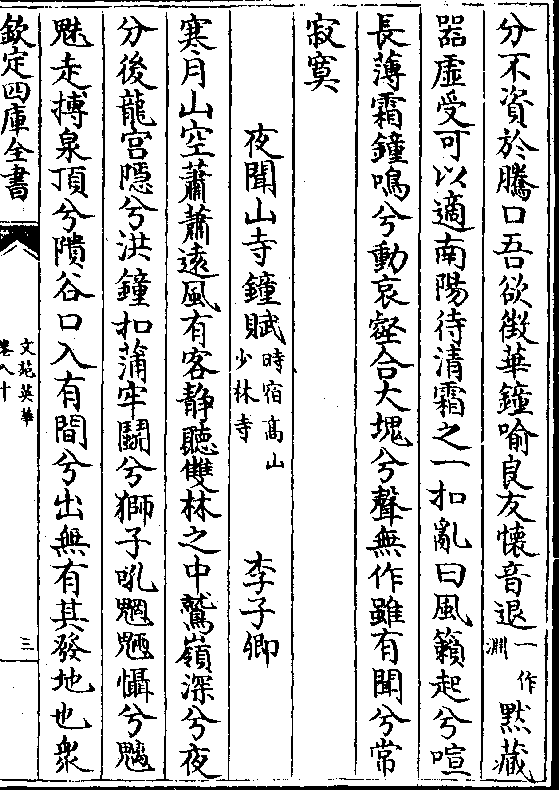 分不資於騰口吾欲徴華鐘喻良友懐音退一作淵黙藏
器虚受可以適南陽待清霜之一扣亂曰風籟起兮喧
長薄霜鐘鳴兮動哀壑合大塊兮聲無作雖有聞兮常
寂寞
夜聞山寺鐘賦時宿髙山少林寺 李子卿
寒月山空蕭蕭遠風有客静聽雙林之中鷲嶺深兮夜
分後龍宫隠兮洪鐘扣蒲牢鬭兮獅子吼魍魎懾兮魑
魅走搏泉頂兮隤谷口入有間兮出無有其發地也衆
欽定四庫全書
文苑英華
卷八十
三